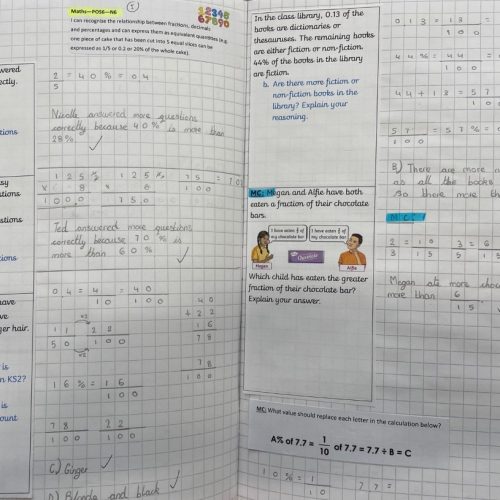 Maths—POS6—N6
I can recognise the relationship between fractions, decimals
and percentages and can express them as equivalent quantities (e.g.
one piece of cake that has been cut into 5 equal slices can be
expressed as 1/5 or 0.2 or 20% of the whole cake).
wered
ectly.
tions
sy
stions
stions
tions
have
ve
ger hair.
is
n KS2?
is
ount
2 = 40% = 04
5
Nicole answered more questions
correctly because 40% is more than
28%
Ted answered more questions
correctly because 70% is
more than 60%
04 = 4 = 40
10 100
40
+ 22
16
78
11 22
50 100
x2
x2
78
100
16% = 16
100
78 22
100 100
C) Ginger
D) Blonde and black
In the class library, 0.13 of the
books are dictionaries or
thesauruses. The remaining books
are either fiction or non-fiction.
44% of the books in the library
are fiction.
b. Are there more fiction or
non-fiction books in the
library? Explain your
reasoning.
013 = 13 =
100
44% = 44 =
100
44 + 13 = 57
10
57 = 57% =
100
B) There are more
as all the books
So there more th
MC: Megan and Alfie have both
eaten a fraction of their chocolate
bars.
I have eaten
my chocolate bar
I have eaten
my chocolate bar
Chocolate
Megan
Alfie
Which child has eaten the greater
fraction of their chocolate bar?
Explain your answer.
MC:
2 = 10 3 = 6
3 15 5 15
Megan ate more choco
more than 6
15
MC: What value should replace each letter in the calculation below?
A% of 7.7 = 1/10 of 7.7 = 7.7 ÷ B = C
10% = 1
10
77 =